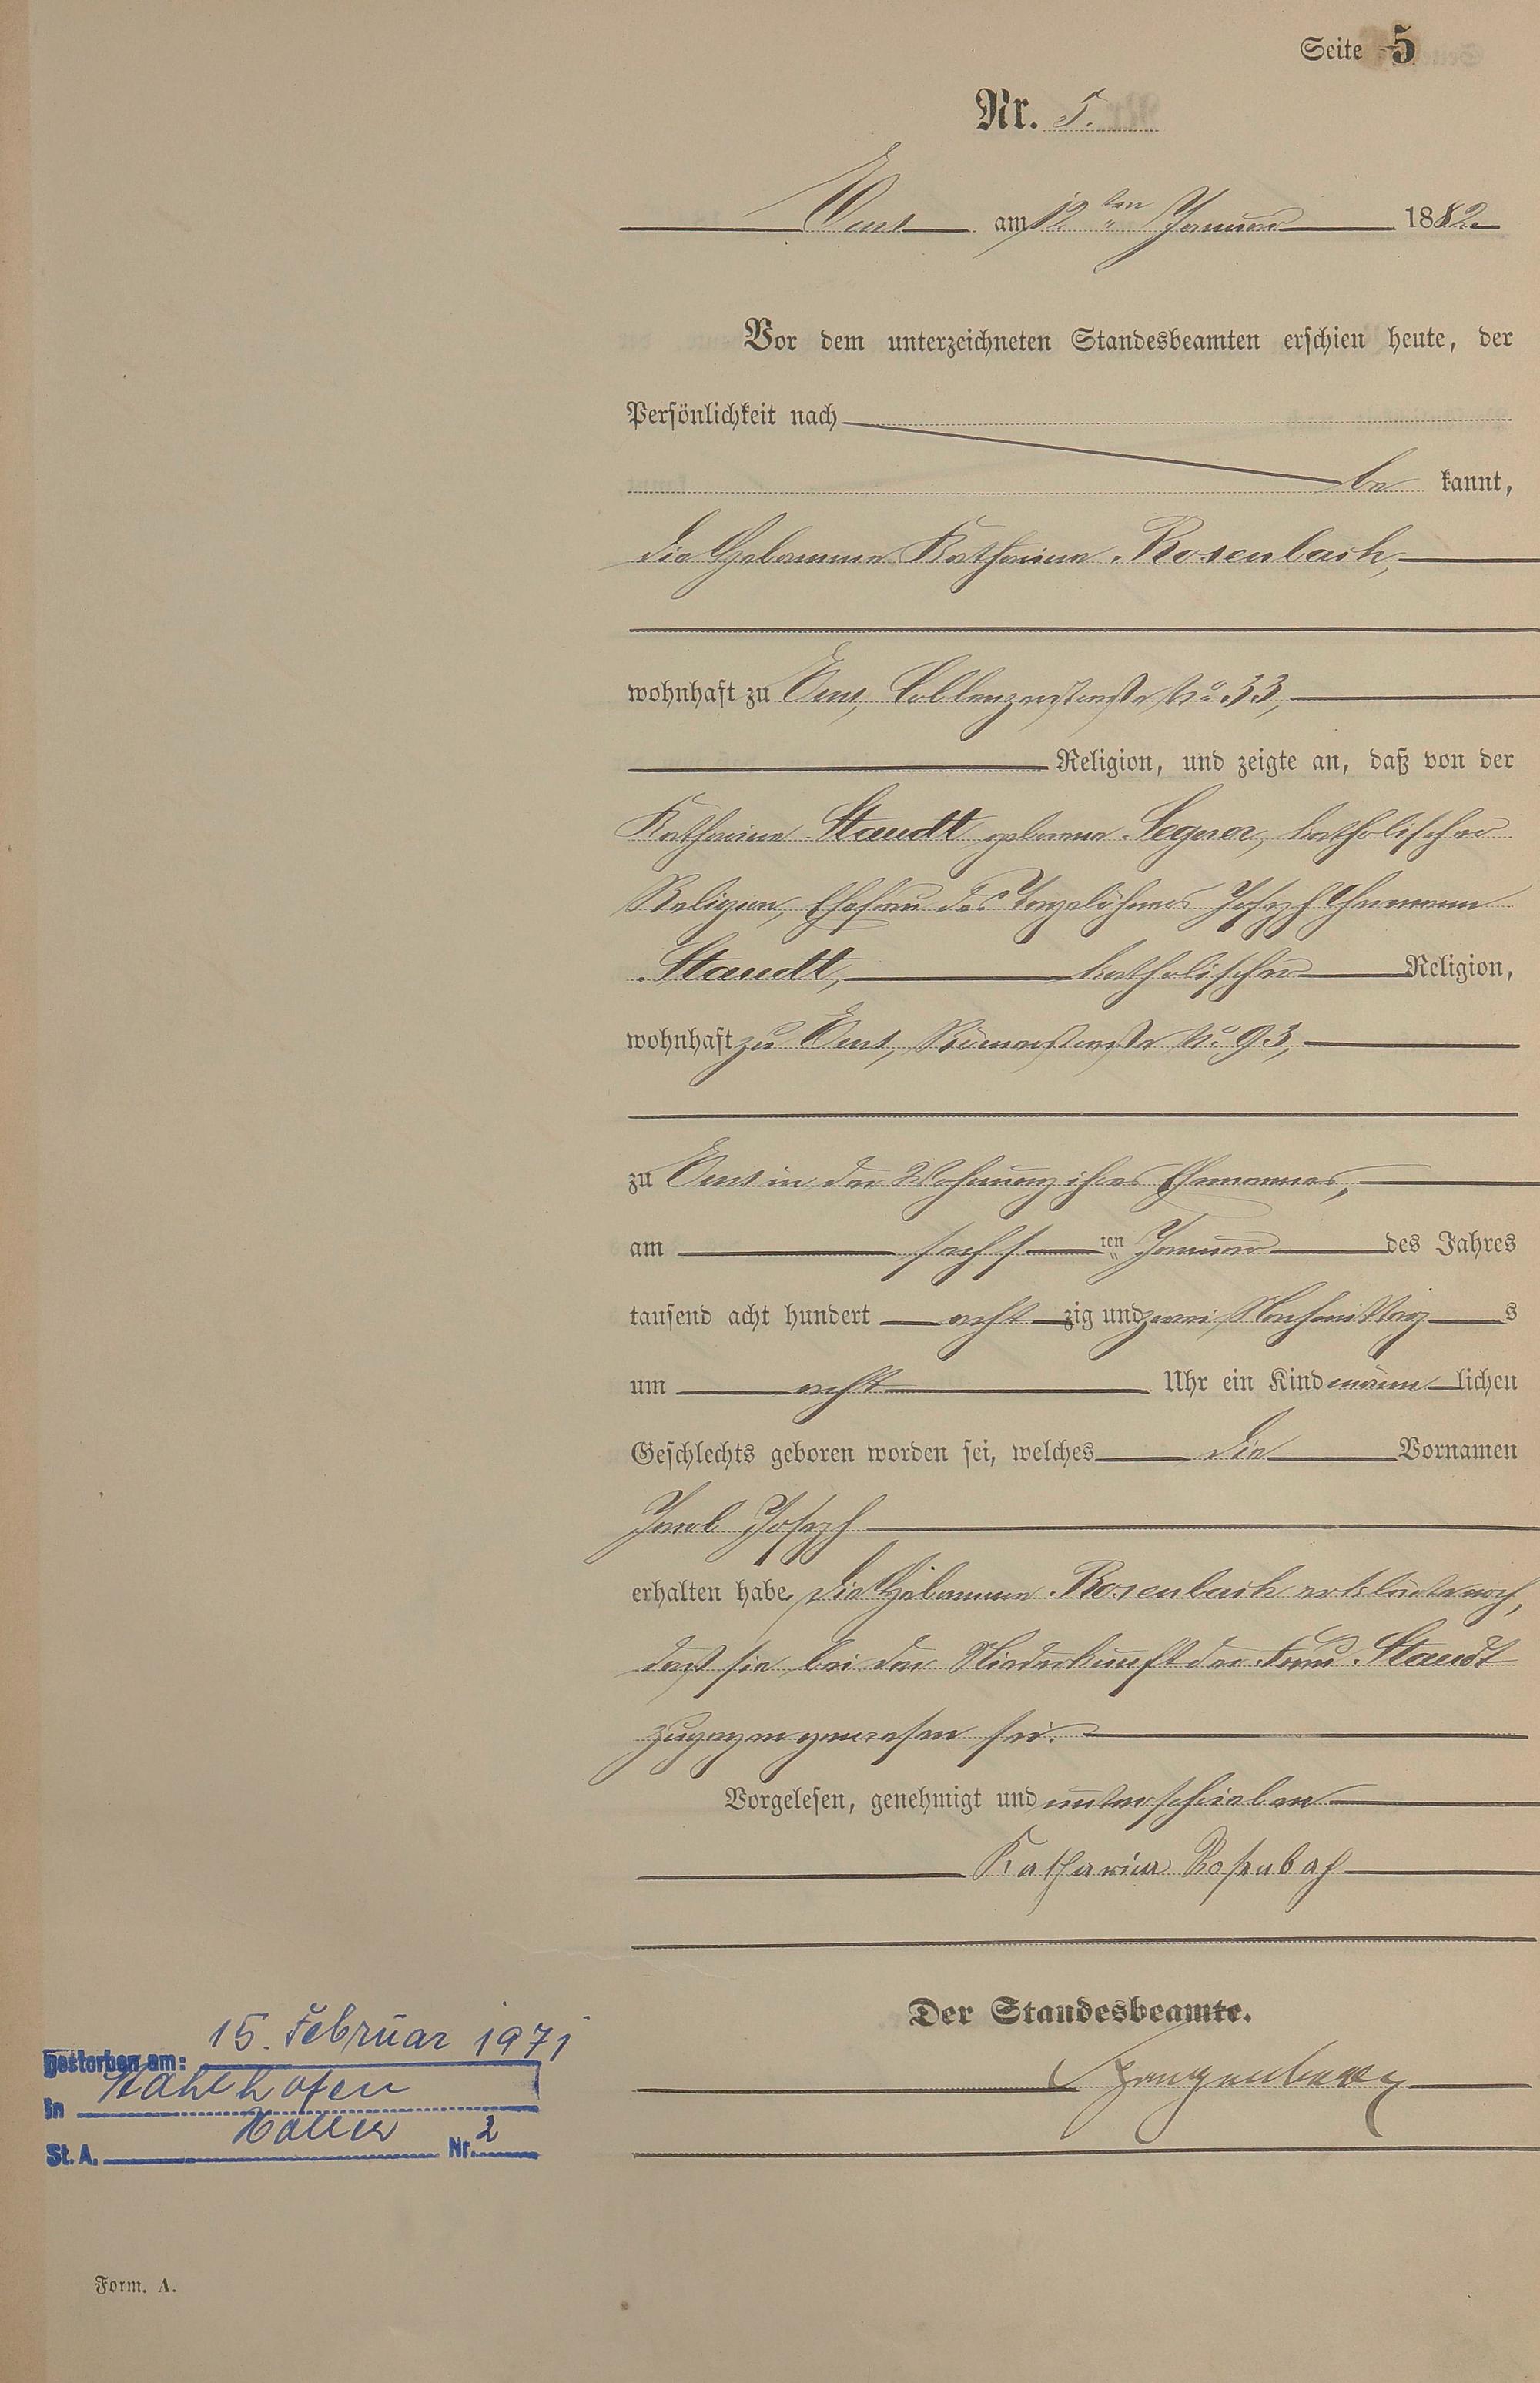 Seite 5
Nr. 5.
Ems am 12ten Januar 1882.
Vor dem unterzeichneten Standesbeamten erschien heute, der
Persönlichkeit nach
be kannt,
die Hebamme Katharina Rosenbach,
wohnhaft zu Ems, Coblenzerstraße No 33,
Religion, und zeigte an, daß von der
Katharina Staudt geborene Segner, katholischer
Religion, Ehefrau des Tagelöhners Joseph Hermann
Staudt, katholischer Religion,
wohnhaft zu Ems, Römerstraße No 93,
zu Ems in der Wohnung ihres Ehemannes,
am sechs ten Januar des Jahres
tausend acht hundert acht zig und zwei Nachmittag s
um acht Uhr ein Kind männ lichen
Geschlechts geboren worden sei, welches die Vornamen
Joseph
erhalten habe. Die Hebamme Rosenbach erklärte noch,
daß sie bei der Niederkunft der Frau Staudt
zugegen gewesen sei.
Vorgelesen, genehmigt und unterschrieben
Katharina Rosenbach
Der Standesbeamte.
gestorben am: 15. Februar 1971
in
St. A. Nr. 2
Form. A.